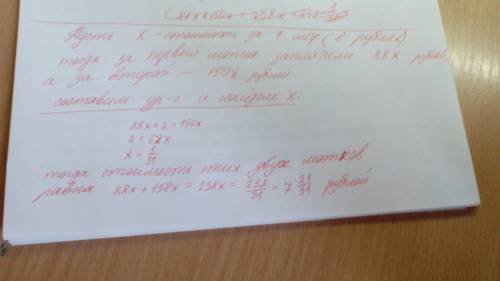 Пусть X - стоимость за 1 метр (в рублях)
тогда за первый моток заплатили 88x рублей,
а за второй - 150x рублей
составим ур-е и найдем X:
88x+2=150x
2=62x
x=1/31
тогда стоимость этих двух мотков
равна 88x+150x=238x=238/31=7 21/31 рублей